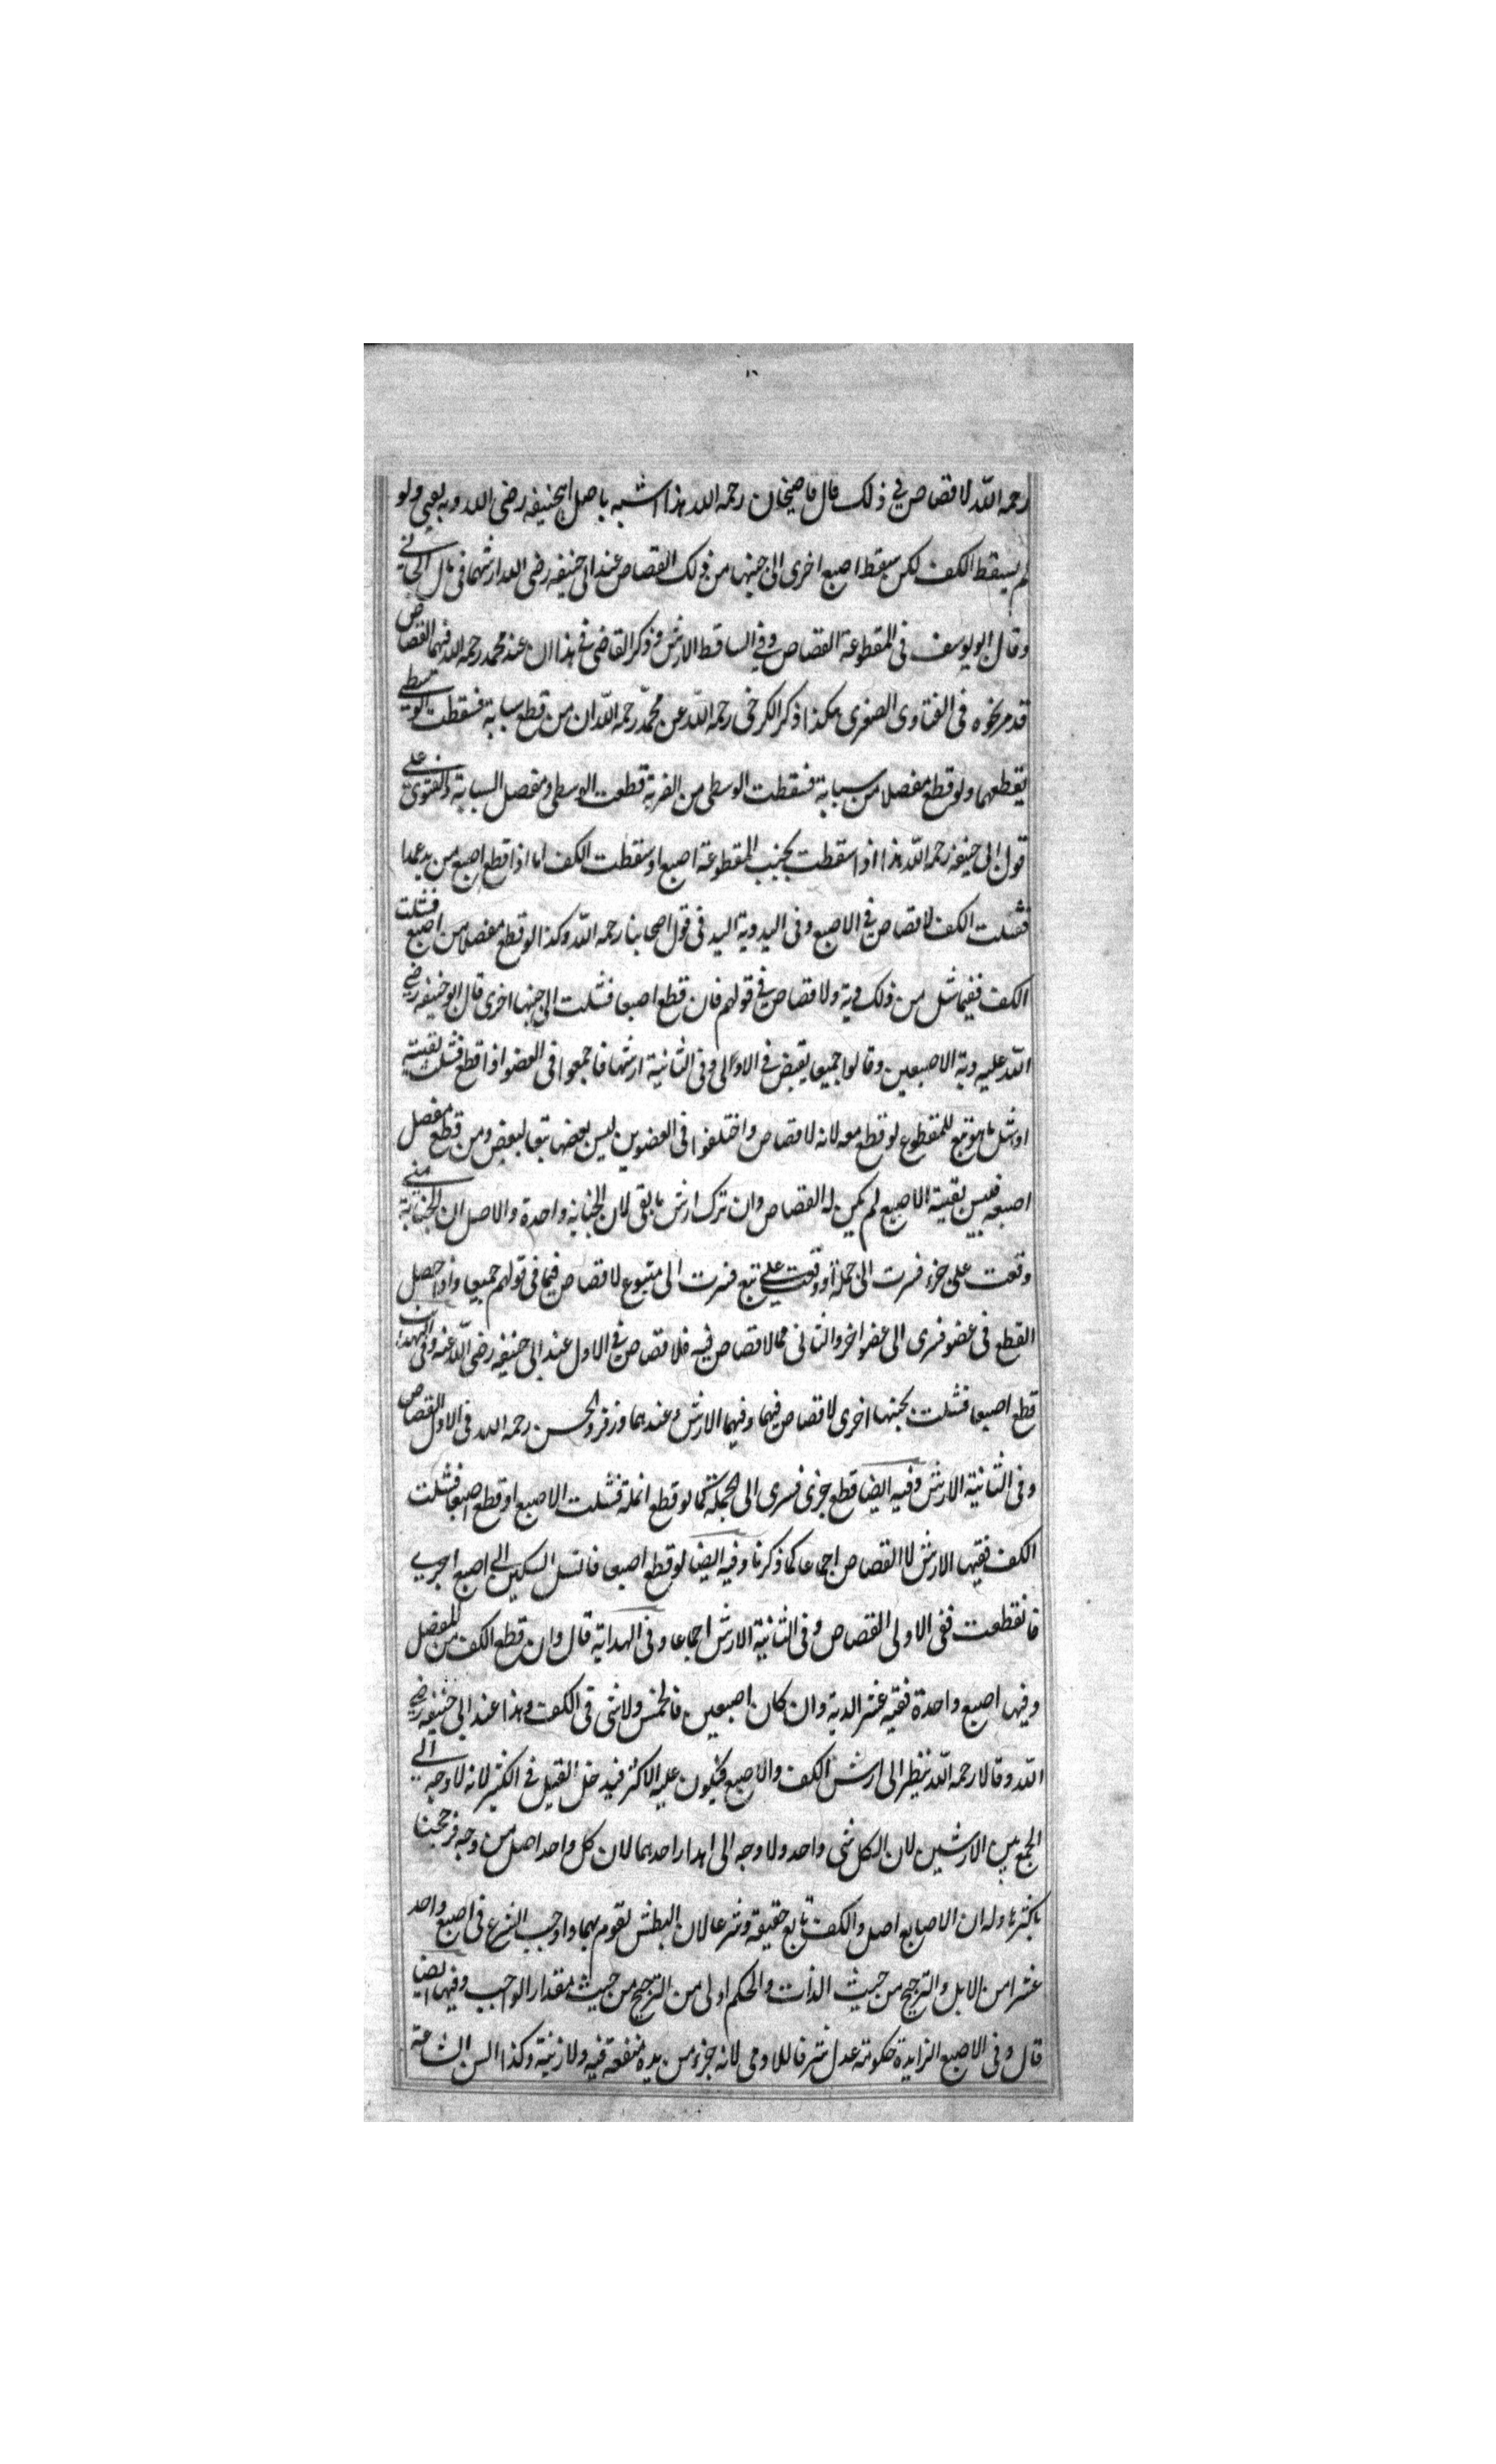 رحمه الله لا قصاص في ذلك قال قاضيخان رحمه الله هذا اشبه باصل ابيحنيفه رضى الله وبه يفتى ولو
لم يسقط الكف لكن سقط اصبع اخرى الى جنبها من ذلك القصاص عند ابى حنيفه رضى الله ارشهما فى مال الجانى
وقال ابو يوسف فى المقطوعة القصاص وفي الساقط الارش وذكر القاضى في هذا ان عند محمد رحمه الله فيهما القصاص
قد مر نحوه فى الفتاوى الصغرى هكذا ذكر الكرخى رحمه الله عن محمد رحمه الله ان من قطع سبابة فسقطت الوسطى
يقطعهما ولو قطع مفصلا من سبابة فسقطت الوسطى من الضربة قطعت الوسطى ومفصل السبابة والفتوى على
قول ابى حنيفه رحمه الله هذا اذا سقطت بجنب المقطوعة اصبع او سقطت الكف اما اذا قطع اصبع من يد عمدا
فشلت الكف لا قصاص في الاصبع وفى اليد دية اليد فى قول اصحابنا رحمه الله وكذا لو قطع مفصلا من اصبع فشلت
الكف ففيما شل من ذلك دية ولا قصاص في قولهم فان قطع اصبعا فشلت الى جنبها اخرى قال ابو حنيفه رضى
الله عليه دية الاصبعين وقالوا جميعا يقبض في الاولى وفى الثانية ارشها فاجمعوا فى العضو اذا قطع فشلت بقيته
او شل ما هو تبع للمقطوع لو قطع معه لانه لا قصاص واختلفوا فى العضوين ليس بعضها تبعا لبعض ومن قطع مفصل
اصبعه فيبس بقية الاصبع لم يكن له القصاص وان ترك ارش ما بقى لان الجناية واحدة والاصل ان الجناية متى
وقعت على جزء فسرت الى جملة او وقعت على تبع فسرت الى متبوع لا قصاص فيها فى قولهم جميعا واذا حصل
القطع فى عضو فسرى الى عضو اخر والثانى مما لا قصاص فيه فلا قصاص في الاول عند ابى حنيفه رضى الله عنه وفى
قطع اصبعا فشلت بجنبها اخرى لا قصاص فيهما وفيهما الارش وعندهما وزفر والحسن رحمه الله فى الاول القصاص
وفى الثانية الارش وفيه ايضا قطع جزى فسرى الى الجملة كما لو قطع انملة فشلت الاصبع او قطع اصبعا فشلت
الكف ففيها الارش لا القصاص اجماعا كما ذكرنا وفيه ايضا لو قطع اصبعا فانسل السكين الى اصبع اخرى
فانقطعت ففى الاولى القصاص وفى الثانية الارش اجماعا وفى الهداية قال وان قطع الكف من المفصل
وفيها اصبع واحدة ففيه عشر الدية وان كان اصبعين فالخمس ولا شى فى الكف وهذا عند ابى حنيفه رضى
الله وقالا رحمه الله ينظر الى ارش الكف والاصبع فيكون عليه الاكثر فيدخل القليل فى الكثير لانه لا وجه الى
الجمع بين الارشين لان الكل شى واحد ولا وجه الى اهدار احدهما لان كل واحد اصل من وجه فرجحنا
باكثرها وله ان الاصابع اصل والكف تابع حقيقة وشرعا لان البطش تقوم بهما واوجب الشرع فى اصبع واحد
عشرا من الابل والترجيح من حيث الذات والحكم اولى من الترجيح من حيث مقدار الواجب وفيها ايضا
قال وفى الاصبع الزايدة حكومة عدل شرفا للادمى لانه جزء من يده منفعة فيه ولا زينة وكذا السن الشاغية